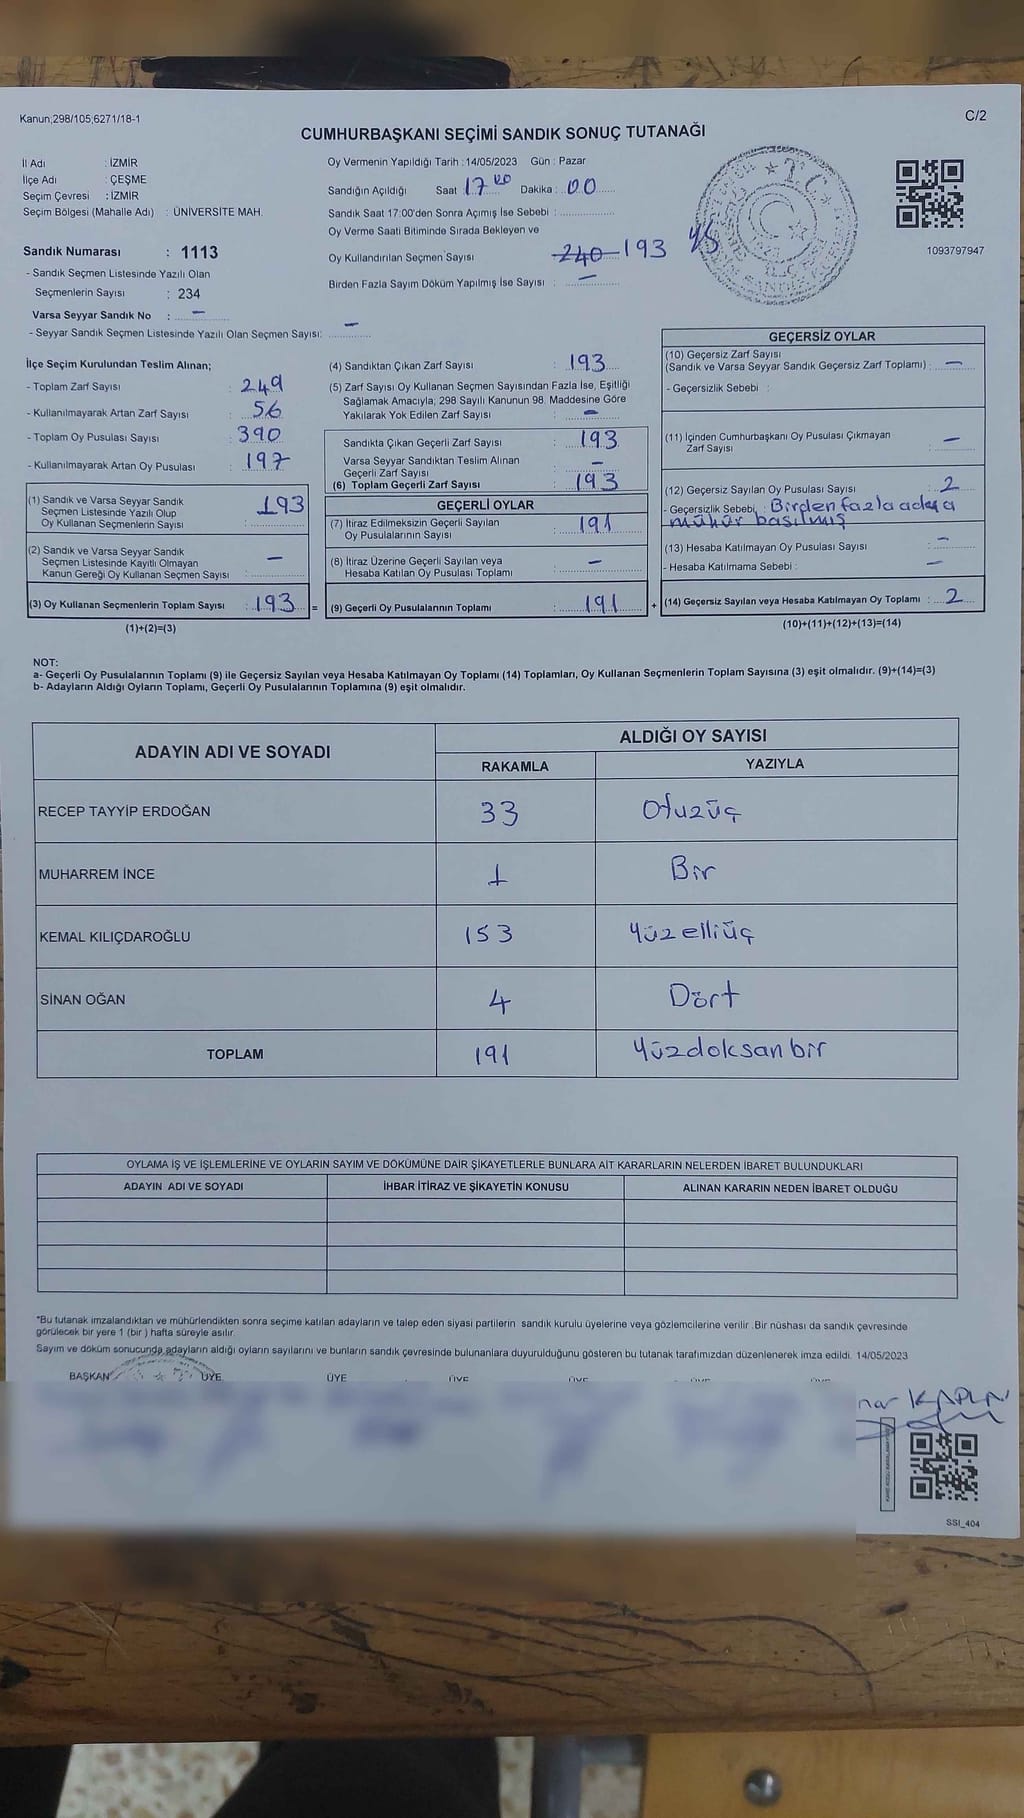 Kanun;298/105;6271/18-1
C/2
CUMHURBAŞKANI SEÇİMİ SANDIK SONUÇ TUTANAĞI
İl Adı : İZMİR
İlçe Adı : ÇEŞME
Seçim Çevresi : İZMİR
Seçim Bölgesi (Mahalle Adı) : ÜNİVERSİTE MAH.
Sandık Numarası : 1113
- Sandık Seçmen Listesinde Yazılı Olan
Seçmenlerin Sayısı : 234
Varsa Seyyar Sandık No : —
- Seyyar Sandık Seçmen Listesinde Yazılı Olan Seçmen Sayısı: —
Oy Vermenin Yapıldığı Tarih : 14/05/2023 Gün : Pazar
Sandığın Açıldığı Saat 17 00 Dakika : 00
Sandık Saat 17:00'den Sonra Açımış İse Sebebi :
Oy Verme Saati Bitiminde Sırada Bekleyen ve
Oy Kullandırılan Seçmen Sayısı 240 193
Birden Fazla Sayım Döküm Yapılmış İse Sayısı : —
1093797947
İlçe Seçim Kurulundan Teslim Alınan;
- Toplam Zarf Sayısı : 249
- Kullanılmayarak Artan Zarf Sayısı : 56
- Toplam Oy Pusulası Sayısı : 390
- Kullanılmayarak Artan Oy Pusulası : 197
(1) Sandık ve Varsa Seyyar Sandık
Seçmen Listesinde Yazılı Olup
Oy Kullanan Seçmenlerin Sayısı : 193
(2) Sandık ve Varsa Seyyar Sandık
Seçmen Listesinde Kayıtlı Olmayan
Kanun Gereği Oy Kullanan Seçmen Sayısı : —
(3) Oy Kullanan Seçmenlerin Toplam Sayısı : 193 =
(1)+(2)=(3)
(4) Sandıktan Çıkan Zarf Sayısı : 193
(5) Zarf Sayısı Oy Kullanan Seçmen Sayısından Fazla İse, Eşitliği
Sağlamak Amacıyla; 298 Sayılı Kanunun 98. Maddesine Göre
Yakılarak Yok Edilen Zarf Sayısı : —
Sandıkta Çıkan Geçerli Zarf Sayısı : 193
Varsa Seyyar Sandıktan Teslim Alınan
Geçerli Zarf Sayısı : —
(6) Toplam Geçerli Zarf Sayısı : 193
GEÇERLİ OYLAR
(7) İtiraz Edilmeksizin Geçerli Sayılan
Oy Pusulalarının Sayısı : 191
(8) İtiraz Üzerine Geçerli Sayılan veya
Hesaba Katılan Oy Pusulası Toplamı : —
(9) Geçerli Oy Pusulalarının Toplamı : 191 +
GEÇERSİZ OYLAR
(10) Geçersiz Zarf Sayısı
(Sandık ve Varsa Seyyar Sandık Geçersiz Zarf Toplamı) : —
- Geçersizlik Sebebi :
(11) İçinden Cumhurbaşkanı Oy Pusulası Çıkmayan
Zarf Sayısı : —
(12) Geçersiz Sayılan Oy Pusulası Sayısı : 2
- Geçersizlik Sebebi : Birden fazla adaya
mühür basılmış
(13) Hesaba Katılmayan Oy Pusulası Sayısı : —
- Hesaba Katılmama Sebebi : —
(14) Geçersiz Sayılan veya Hesaba Katılmayan Oy Toplamı : 2
(10)+(11)+(12)+(13)=(14)
NOT:
a- Geçerli Oy Pusulalarının Toplamı (9) ile Geçersiz Sayılan veya Hesaba Katılmayan Oy Toplamı (14) Toplamları, Oy Kullanan Seçmenlerin Toplam Sayısına (3) eşit olmalıdır. (9)+(14)=(3)
b- Adayların Aldığı Oyların Toplamı, Geçerli Oy Pusulalarının Toplamına (9) eşit olmalıdır.
ADAYIN ADI VE SOYADI ALDIĞI OY SAYISI
RAKAMLA YAZIYLA
RECEP TAYYİP ERDOĞAN 33 Otuzüç
MUHARREM İNCE 1 Bir
KEMAL KILIÇDAROĞLU 153 Yüzelliüç
SİNAN OĞAN 4 Dört
TOPLAM 191 Yüzdoksanbir
OYLAMA İŞ VE İŞLEMLERİNE VE OYLARIN SAYIM VE DÖKÜMÜNE DAİR ŞİKAYETLERLE BUNLARA AİT KARARLARIN NELERDEN İBARET BULUNDUKLARI
ADAYIN ADI VE SOYADI İHBAR İTİRAZ VE ŞİKAYETİN KONUSU ALINAN KARARIN NEDEN İBARET OLDUĞU
*Bu tutanak imzalandıktan ve mühürlendikten sonra seçime katılan adayların ve talep eden siyasi partilerin sandık kurulu üyelerine veya gözlemcilerine verilir .Bir nüshası da sandık çevresinde
görülecek bir yere 1 (bir ) hafta süreyle asılır.
Sayım ve döküm sonucunda adayların aldığı oyların sayılarını ve bunların sandık çevresinde bulunanlara duyurulduğunu gösteren bu tutanak tarafımızdan düzenlenerek imza edildi. 14/05/2023
BAŞKAN ÜYE ÜYE ÜYE ÜYE ÜYE ÜYE
KAPLAN
SSI_404